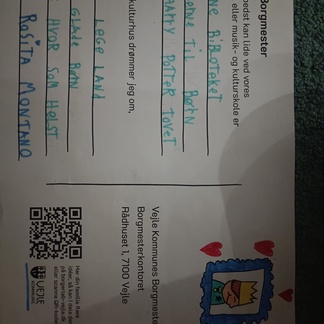 Borgmester
bedst kan lide ved vores
eller musik- og kulturskole er
NE BiBLOTEKET
TiL BØRN
POTER TOVET
kulturhus drømmer jeg om,
LEGE LAND
GLADE BØRN
HVOR SOM HELST
ROSITA MONTANO
Vejle Kommunes Borgmester
Borgmesterkontoret
Rådhuset 1, 7100 Vejle
Har din familie flere
VEJLE
KOMMUNE